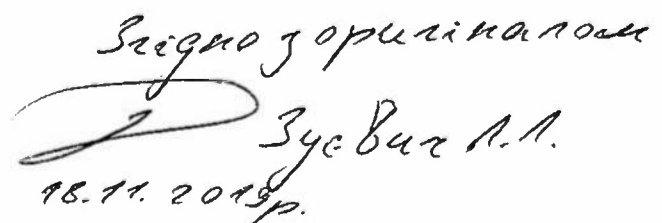 Згідно з оригіналом
Зуєвич Л.Л.
18.11.2019р.